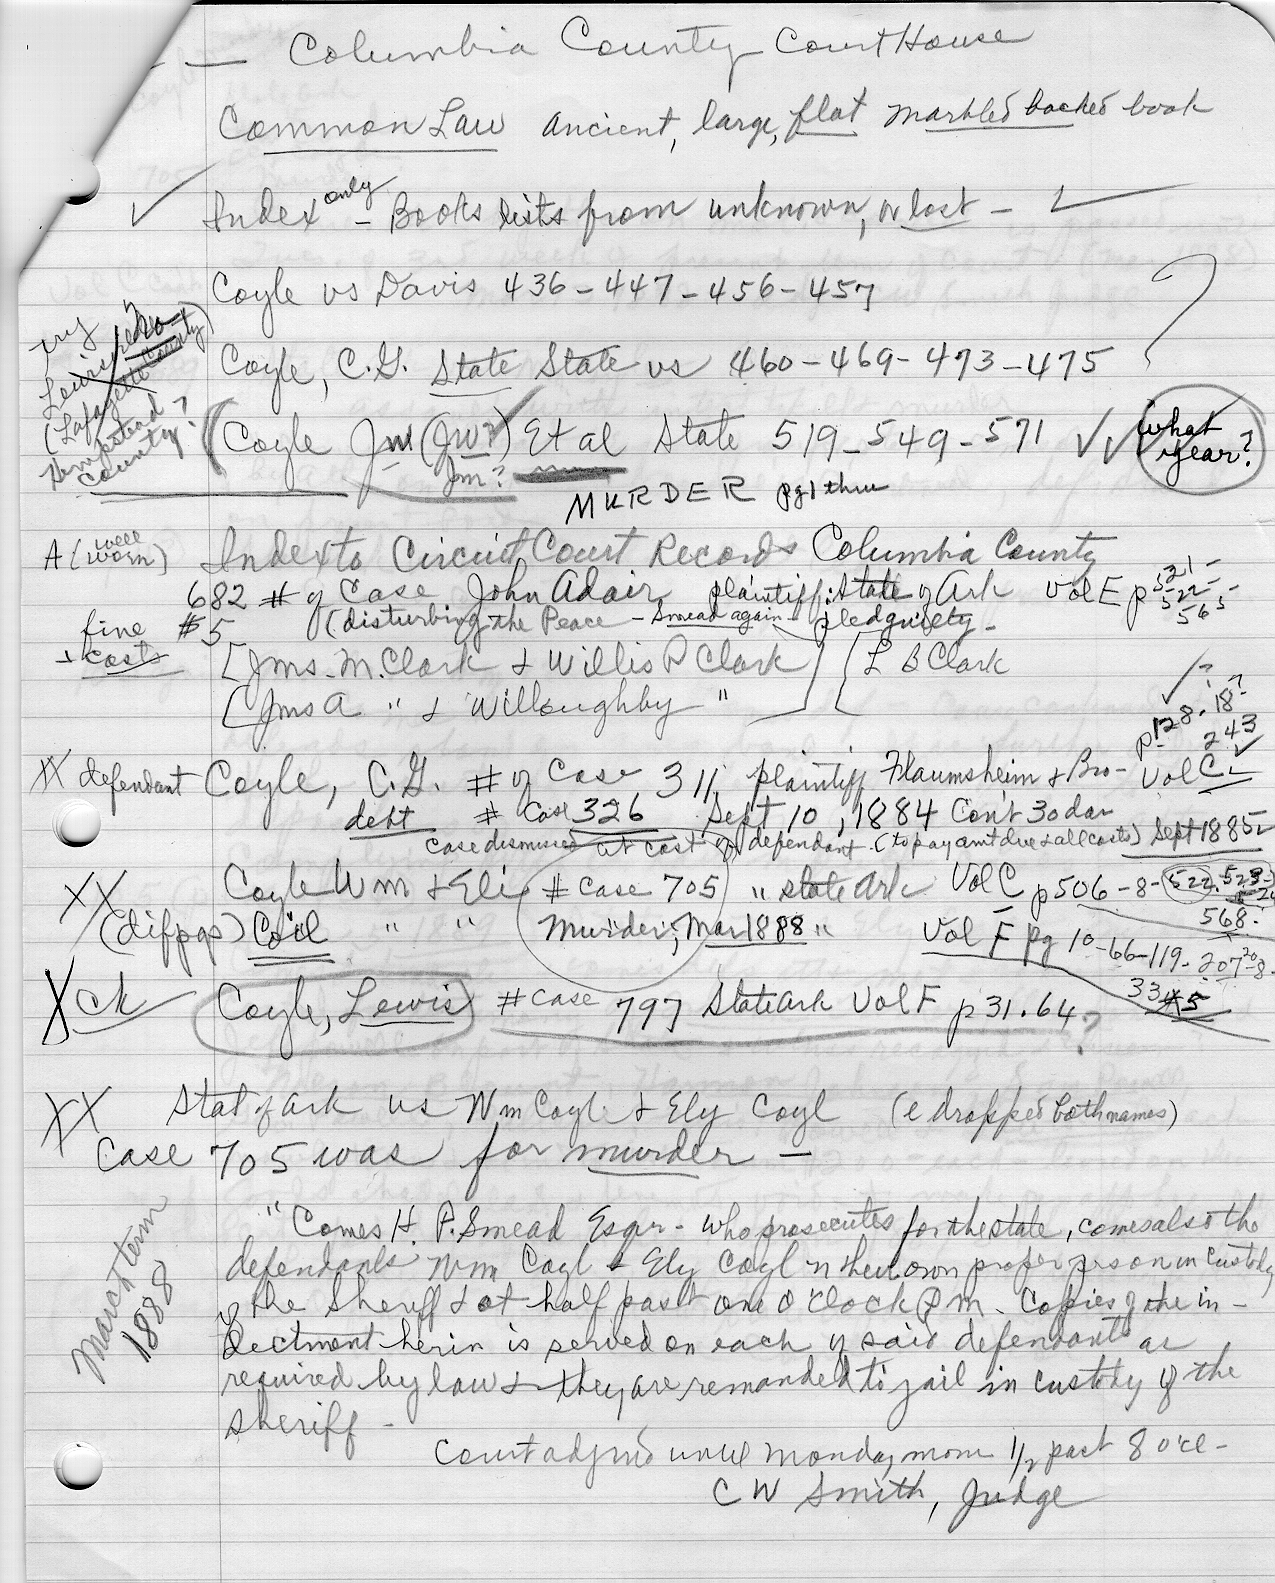 Columbia County Court House
Common Law Ancient, large, flat marbled backed book
Index only - Books lists from unknown, or lost -
Coyle vs Davis 436-447-456-457
?
Coyle, C.G. State State vs 460-469-473-475
try
Lewisville
(Lafayette County)
Hempstead
County?
(Coyle Jm (Jw?) Et al State 519-549-571
Jm?
what
year?
MURDER pg 1 thru
A (well worn) Index to Circuit Court Records Columbia County
682 # of Case John Adair plaintiff: State of Ark Vol E p 521-
522-
565
fine $5 (disturbing the Peace - Smead again - pled guilty -
+ costs
[Jms. M. Clark & Willis P Clark
[L B Clark
[Jms A " & Willoughby "
?
p 128. 18?
243
XX defendant Coyle, C.G. # of Case 311, plaintiff Flaumsheim & Bro- Vol C
debt # Case 326 Sept 10, 1884 Con't 30 da
case dismissed at cost of defendant. (to pay amt due & all costs) Sept 1885
XX Coyle Wm & Eli # Case 705 " state Ark Vol C p 506-8-522,523-
524
568.
(dif pgs) Coil " " Murder, Mar 1888 " Vol F pg 10-66-119-207-208-
33 #5
X ck Coyle, Lewis # case 797 State Ark Vol F p 31.64
?
XX Stat of Ark vs Wm Coyl & Ely Coyl (e dropped both names)
Case 705 was for murder -
March term
1888
"Comes H. P. Smead Esqr - who prosecutes for the state, comes also the
defendants Wm Coyl & Ely Coyl n their own proper person in custody
of the Sheriff & at half past one o'clock P m. Copies of the in-
dectment herin is served on each of said defendants as
required by law & they are remanded to jail in custody of the
sheriff -
Court adjrned until Monday morn 1/2 past 8 o'cl-
C W Smith, Judge